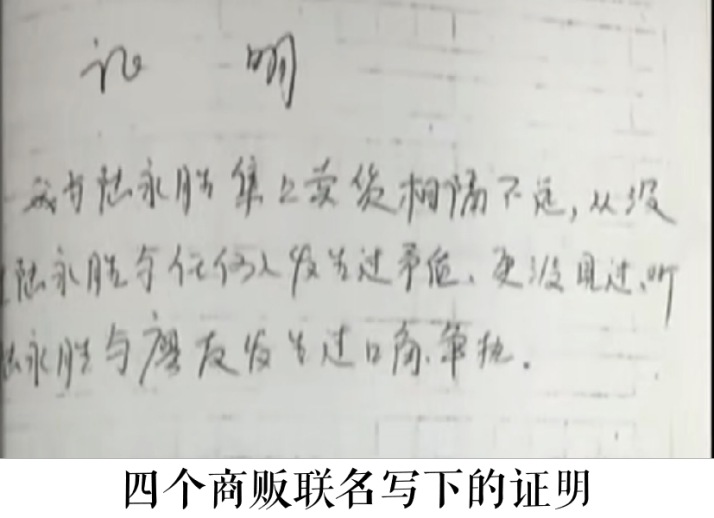 证明
我与陆永胜集上卖货相隔不远，从没
陆永胜与任何人发生过矛盾、更没见过、听
永胜与 友发生过口角、争执.
四个商贩联名写下的证明